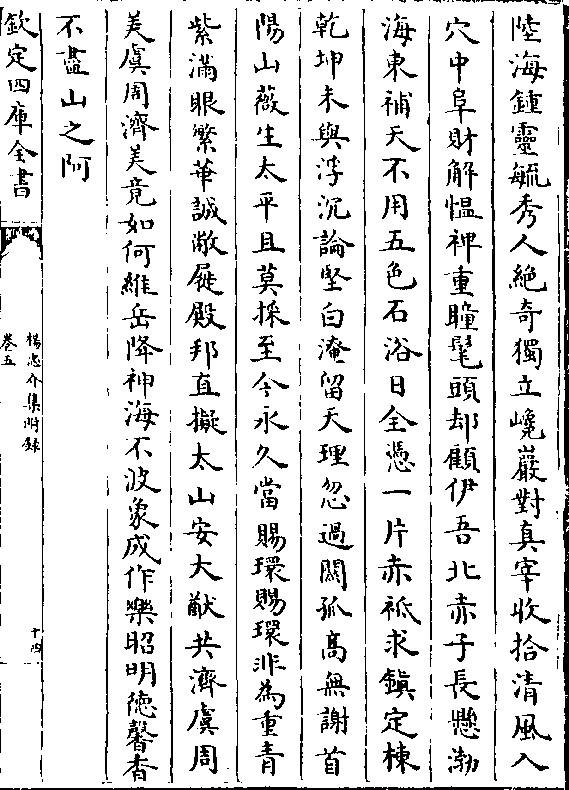 陸海鍾靈毓秀人絶奇獨立巉巖對真宰收拾清風入
穴中阜財解愠神重瞳髦頭却顧伊吾北赤子長懸渤
海東補天不用五色石浴日全憑一片赤祗求鎮定棟
乾坤未與浮沉論堅白淹留天理忽過闗孤高無謝首
陽山薇生太平且莫採至今永久當賜環賜環非為重青
紫滿眼繁華誠敝屣殿邦直擬太山安大猷共濟虞周
美虞周濟美竟如何維岳降神海不波象成作樂昭明徳馨香
不盡山之阿
欽定四庫全書
楊忠介集附録
卷五
十四